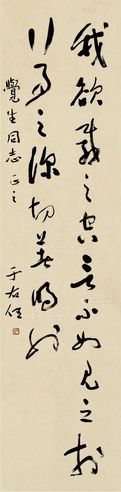 我欲載之空言不如見之於
行事之深切著明也
覺生同志正之
于右任